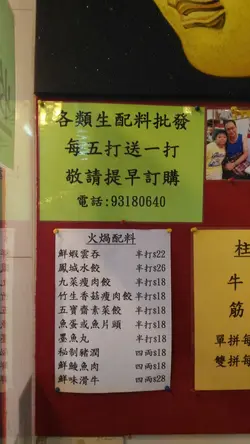 各類生配料批發
每五打送一打
敬請提早訂購
電話:93180640
火焗配料
鮮蝦雲吞 半打$22
鳳城水餃 半打$26
九菜瘦肉餃 半打$18
竹生香菇瘦肉餃 半打$18
五寶齋素菜餃 半打$18
魚蛋或魚片頭 半打$18
墨魚丸 半打$18
秘制豬潤 四両$18
鮮鯪魚肉 四両$18
鮮味滑牛 四両$28
柱
牛
筋
單拼每
雙拼每